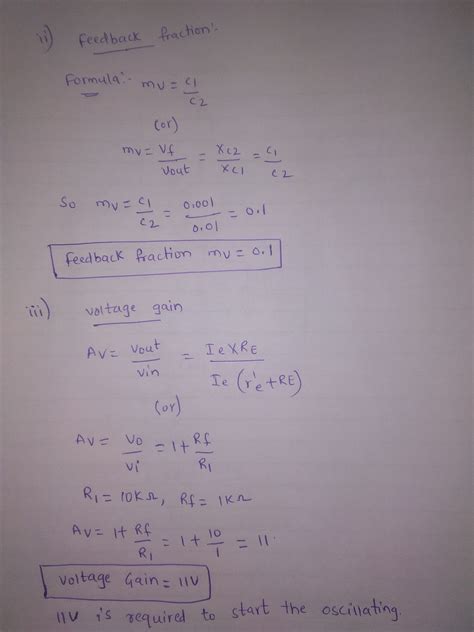 ii) feedback fraction:-
Formula:- mv = C1/C2
(or)
mv = Vf/Vout = XC2/XC1 = C1/C2
So mv = C1/C2 = 0.001/0.01 = 0.1
feedback fraction mv = 0.1
iii) voltage gain
Av = Vout/Vin = Ie X RE/Ie (r'e + RE)
(or)
Av = Vo/Vi = 1 + Rf/R1
R1 = 10KΩ, Rf = 1KΩ
Av = 1 + Rf/R1 = 1 + 10/1 = 11.
Voltage Gain = 11V
11V is required to start the oscillating.